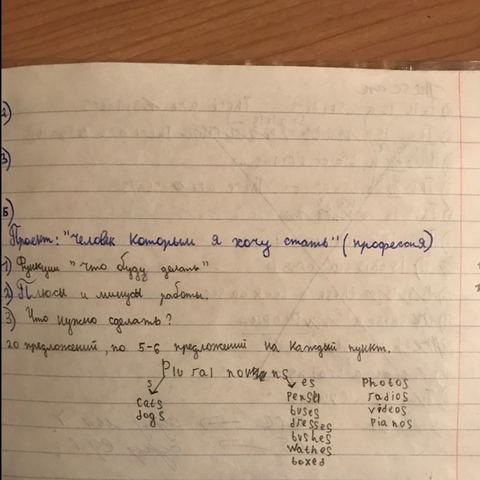 3)
Б)
Проект: "Человек которым я хочу стать" (профессия)
1) Функции "что буду делать"
2) Плюсы и минусы работы.
3) Что нужно сделать?
20 предложений, по 5-6 предложений на каждый пункт.
Plural nouns
s es Photos
cats radios
dogs buses videos
dresses Pianos
bushes
wathes
boxed